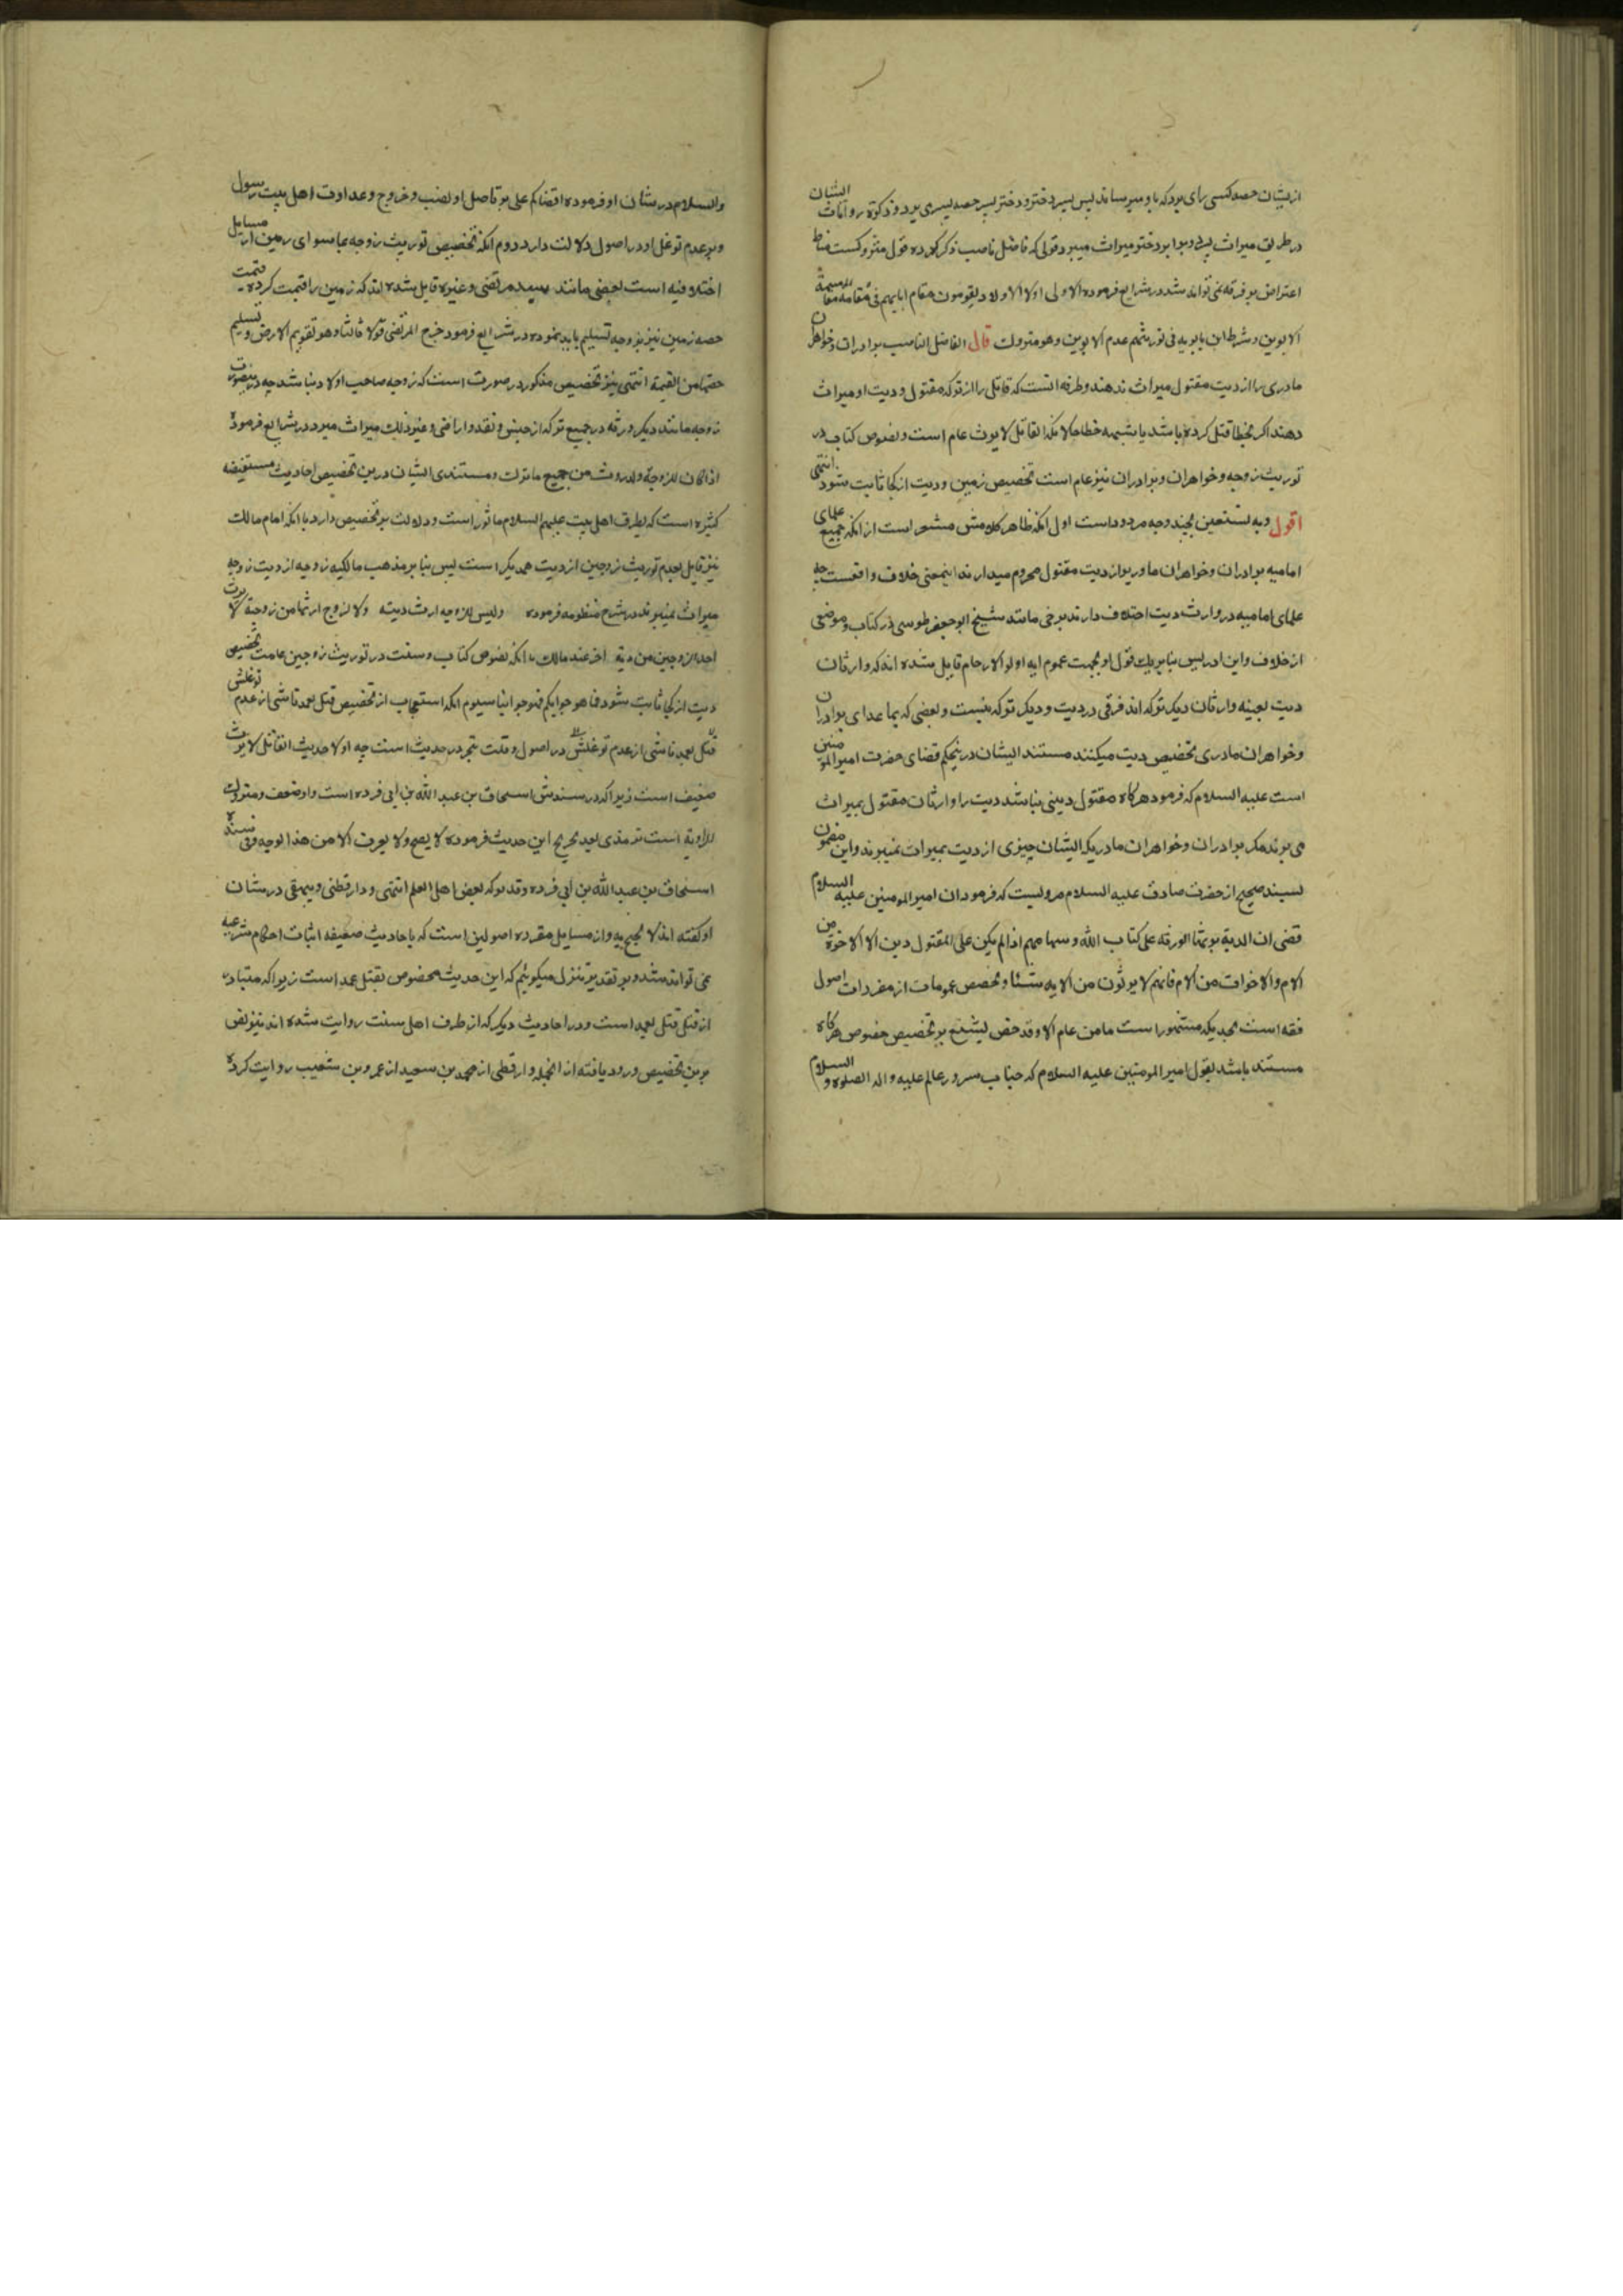 ازیشان حصه کسی رای برد که باو میرساند پس پسر دختر و دختر پسر حصه پسری برد و ذکوة روایات ایشان
در طریق میراث پسر و برابر دختر میراث میبرد و قولی که فاضل ناصب ذکر کرده قول متروکست مناط
اعتراض بر فرقه نمی تواند شد در شرایع فرموده الاولی اولاد الاولاد یقومون مقام ابایهم فی مقاسمة
الابوین و شرط ابن بابویه فی توریثهم عدم الابوین وهو متروک قال الفاضل الناصب برادران و خواهران
مادری را از دیت مقتول میراث ندهند و طرفه انست که قاتل را از ترکه مقتول و دیت او میراث
دهند اکر بخطا قتل کرده باشد یا بشبیه خطا حالانکه القاتل لا یرث عام است و نصوص کتاب در
توریث زوجه و خواهران و برادران نیز عام است تخصیص زمین و دیت از کجا ثابت شود انتهی
اقول وبه نستعین بچند وجه مردود است اول انکه ظاهر کلامش مشعر است از انکه جمیع علمای
امامیه برادران و خواهران مادری را از دیت مقتول محروم میدارند اینمعنی خلاف واقعست چه
علمای امامیه در وارث دیت اختلاف دارند برخی مانند شیخ ابو جعفر طوسی در کتاب و موضعی
از خلاف و ابن ادریس بنا بر یک قول او بجهت عموم ایه اولو الارحام قایل شده اند که وارثان
دیت بعینه وارثان دیکر ترکه اند فرقی در دیت و دیکر ترکه نیست و بعضی که بما عدای برادران
و خواهران مادری تخصیص دیت میکنند مستند ایشان در ینحکم قضای حضرت امیر المومنین
است علیه السلام که فرمود هر کاه مقتول دینی نباشد دیت را وارثان مقتول بمیراث
می برند مکر برادران و خواهران مادر یکه ایشان چیزی از دیت بمیراث نمیبرند و این مضمون
بسند صحیح از حضرت صادق علیه السلام مرویست که فرمود ان امیر المومنین علیه السلام
قضی ان الدیة یرثها الورثه علی کتاب الله و سهامهم اذا لم یکن علی المقتول دین الا الاخوة من
الام والاخوات من الام فانهم لا یرثون من الدیه شیئا و تخصیص عمومات از مقررات اصول
فقه است بحدیکه مشهور است ما من عام الا وقد خص تشنیع بر تخصیص خصوص هر کاه
مستند باشد بقول امیر المومنین علیه السلام که جناب سرور عالم علیه و اله الصلوة و السلام
والسلام در شان او فرموده اقضاکم علی بر تاصل او بنصب و خروج و عداوت اهل بیت رسول
و بر عدم توغل او در اصول دلالت دارد دوم انکه تخصیص توریث زوجه بما سوای زمین از مسایل
اختلافیه است بعضی مانند سید مرتضی و غیره قایل شده اند که زمین را قیمت کرده قیمت
حصه زمین نیز بزوجه تسلیم باید نمود در شرایع فرمود خرج المرتضی قولا ثالثا وهو تقویم الارض و تسلیم
حصتها من القیمة انتهی نیز تخصیص مذکور در صورت است که زوجه صاحب اولاد نباشد چه درینصورت
زوجه مانند دیکر ورثه در جمیع ترکه از جنس و نقد و اراضی و غیر ذلک میراث میبرد در شرایع فرموده
اذا کان للزوجة ولد ورثت من جمیع ما ترک و مستند ایشان درین تخصیص احادیث مستفیضه
کثیره است که بطرق اهل بیت علیهم السلام ماثور است و دلالت بر تخصیص دارد با انکه امام مالک
نیز قایل بعدم توریث زوجین از دیت همدیکر است پس بنا بر مذهب مالکیه زوجه از دیت زوجه
میراث نمیبرند در شرح منظومه فرموده ولیس للزوجه ارث دیته ولا لزوج ارثها من زوجة لا یرث
احد الزوجین من دیة اخر عند مالک با انکه نصوص کتاب و سنت در توریث زوجین عامست تخصیص
دیت از کجا ثابت شود فما هو جوابکم فهو جوابنا سیوم انکه استعجاب از تخصیص قتل بعمد ناشی از عدم توغلش
قتل بعمد ناشی از عدم توغلش در اصول و قلت تبحر در حدیث است چه اولا حدیث القاتل لا یرث
ضعیف است زیرا که در سندش اسحاق بن عبد الله بن ابی فروه است و او ضعف و متروک
للراویة است ترمذی بعد تخریج این حدیث فرموده لا یصح ولا یعرف الا من هذا الوجه وفی سنده
اسحاق بن عبد الله بن ابی فروه وقد ترکه بعض اهل العلم انتهی و دار قطنی و بیهقی در شان
او کفته اند لا یحتج به و از مسایل مقرره اصولین است که باحادیث ضعیفه اثبات احکام شرعیه
نمی تواند شد و بر تقدیر تنزل میکوئیم که این حدیث مخصوص بقتل عمد است زیرا که متبادر
از قتل قتل بعمد است و در احادیث دیکر که از طرف اهل سنت روایت شده اند نیز نص
برین تخصیص ورود یافته از انجمله دار قطنی از محمد بن سعید از عمرو بن شعیب روایت کرده